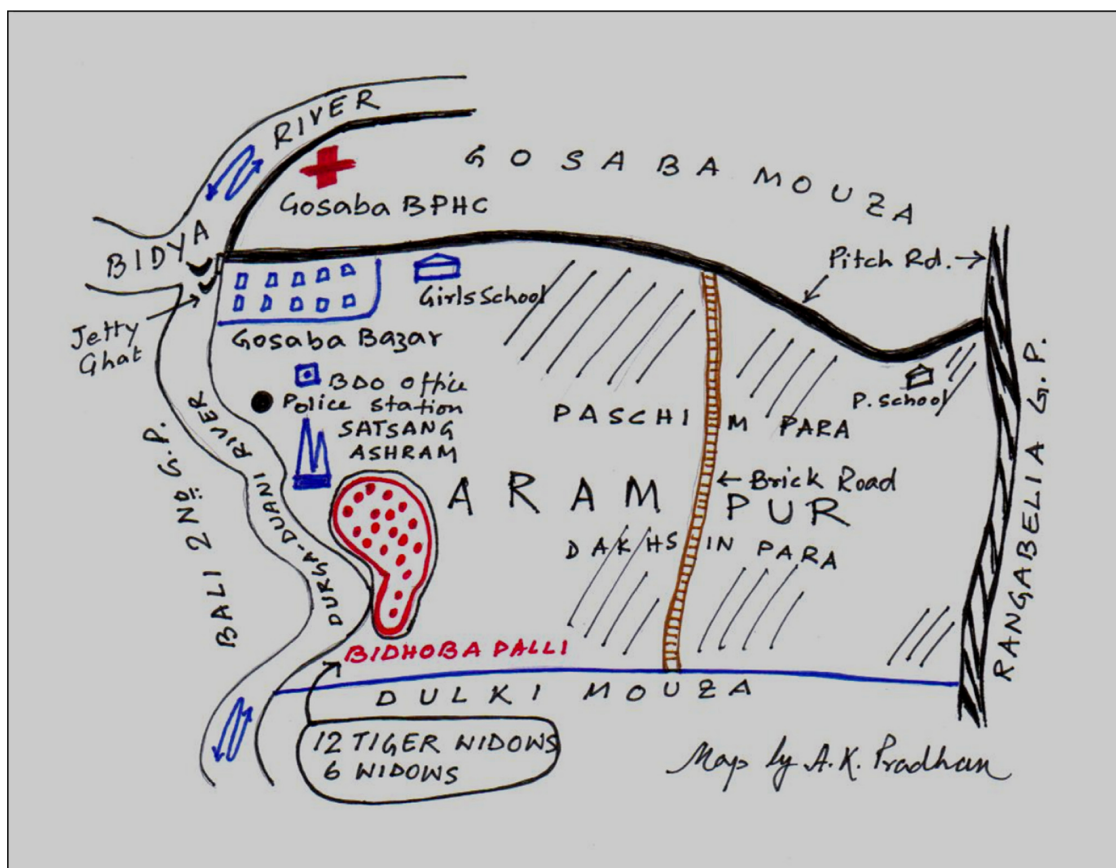 RIVER
BIDYA
GOSABA MOUZA
Gosaba BPHC
Pitch Rd.
Jetty
Ghat
Girls School
Gosaba Bazar
BDO Office
Police Station
SATSANG
ASHRAM
P. School
PASCHIM PARA
Brick Road
ARAMPUR
DAKHSIN PARA
BALI 2ND G.P.
DURGA-DUANI RIVER
RANGABELIA G.P.
BIDHOBA PALLI
DULKI MOUZA
12 TIGER WIDOWS
6 WIDOWS
Map by A.K. Pradhan